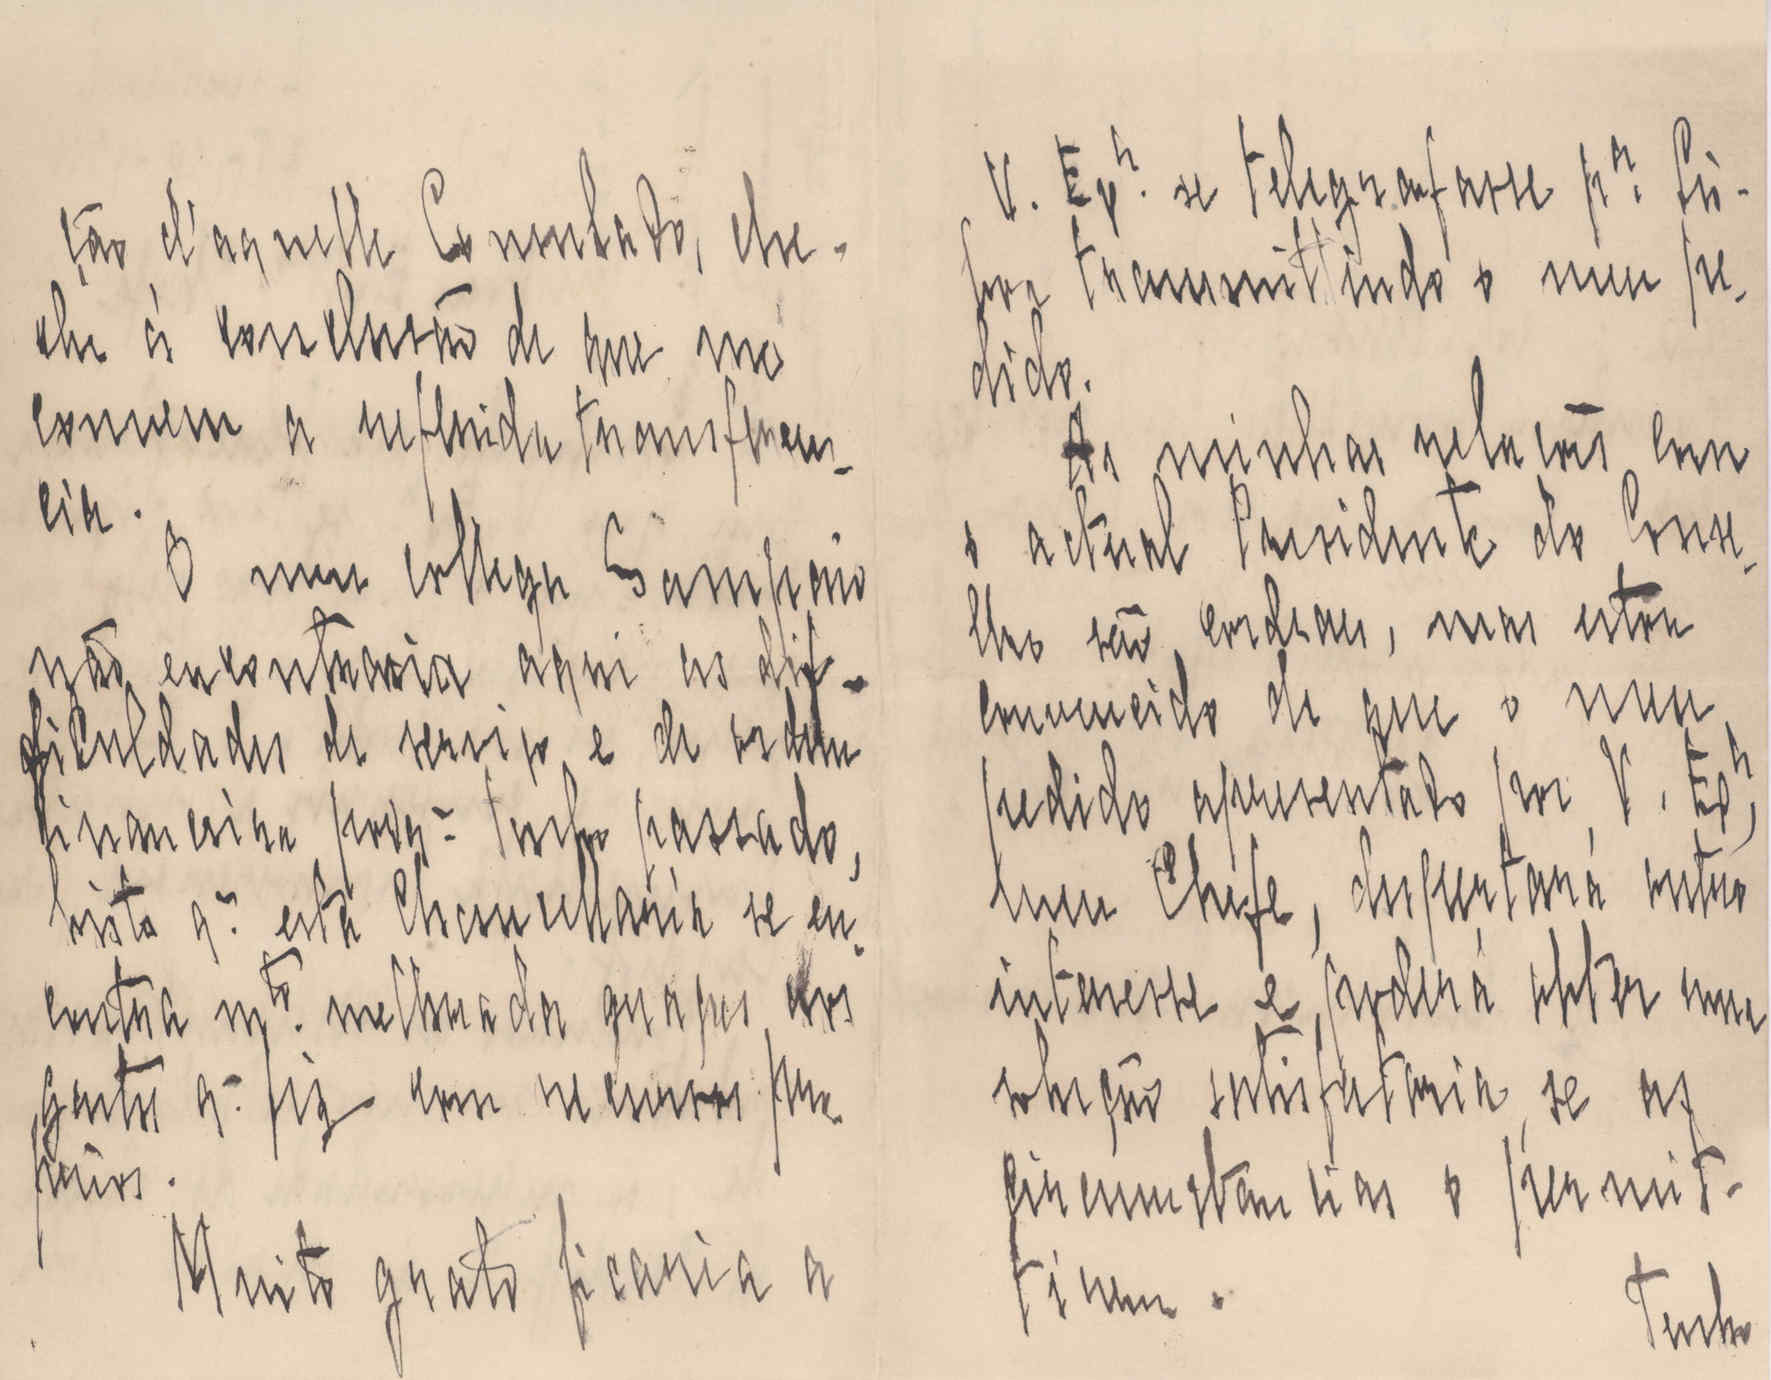 ção d'aquelle Consulado, che-
che á conclusão de que me
convem a referida transferen-
cia.
O meu collega Sampaio
não encontraria aqui as dif-
ficuldades de serviço e de ordem
financeira porq~ tenho passado,
visto q~ esta Chancellaria se en-
contra mto. melhorada graças aos
gastos q~ fiz com recursos pro-
prios.
Muito grato ficaria a
V. Exa. se telegrafasse pa. Lis-
boa transmittindo o meu pe-
dido.
As minhas relações com
o actual Presidente do Conse-
lho são cordeaes, mas estou
convencido de que o meu
pedido apresentado por V. Exa,
meu Chefe, despertará outro
interesse e poderá obter uma
solução satisfatoria, se as
circumstancias o permit-
tirem.
Tenho